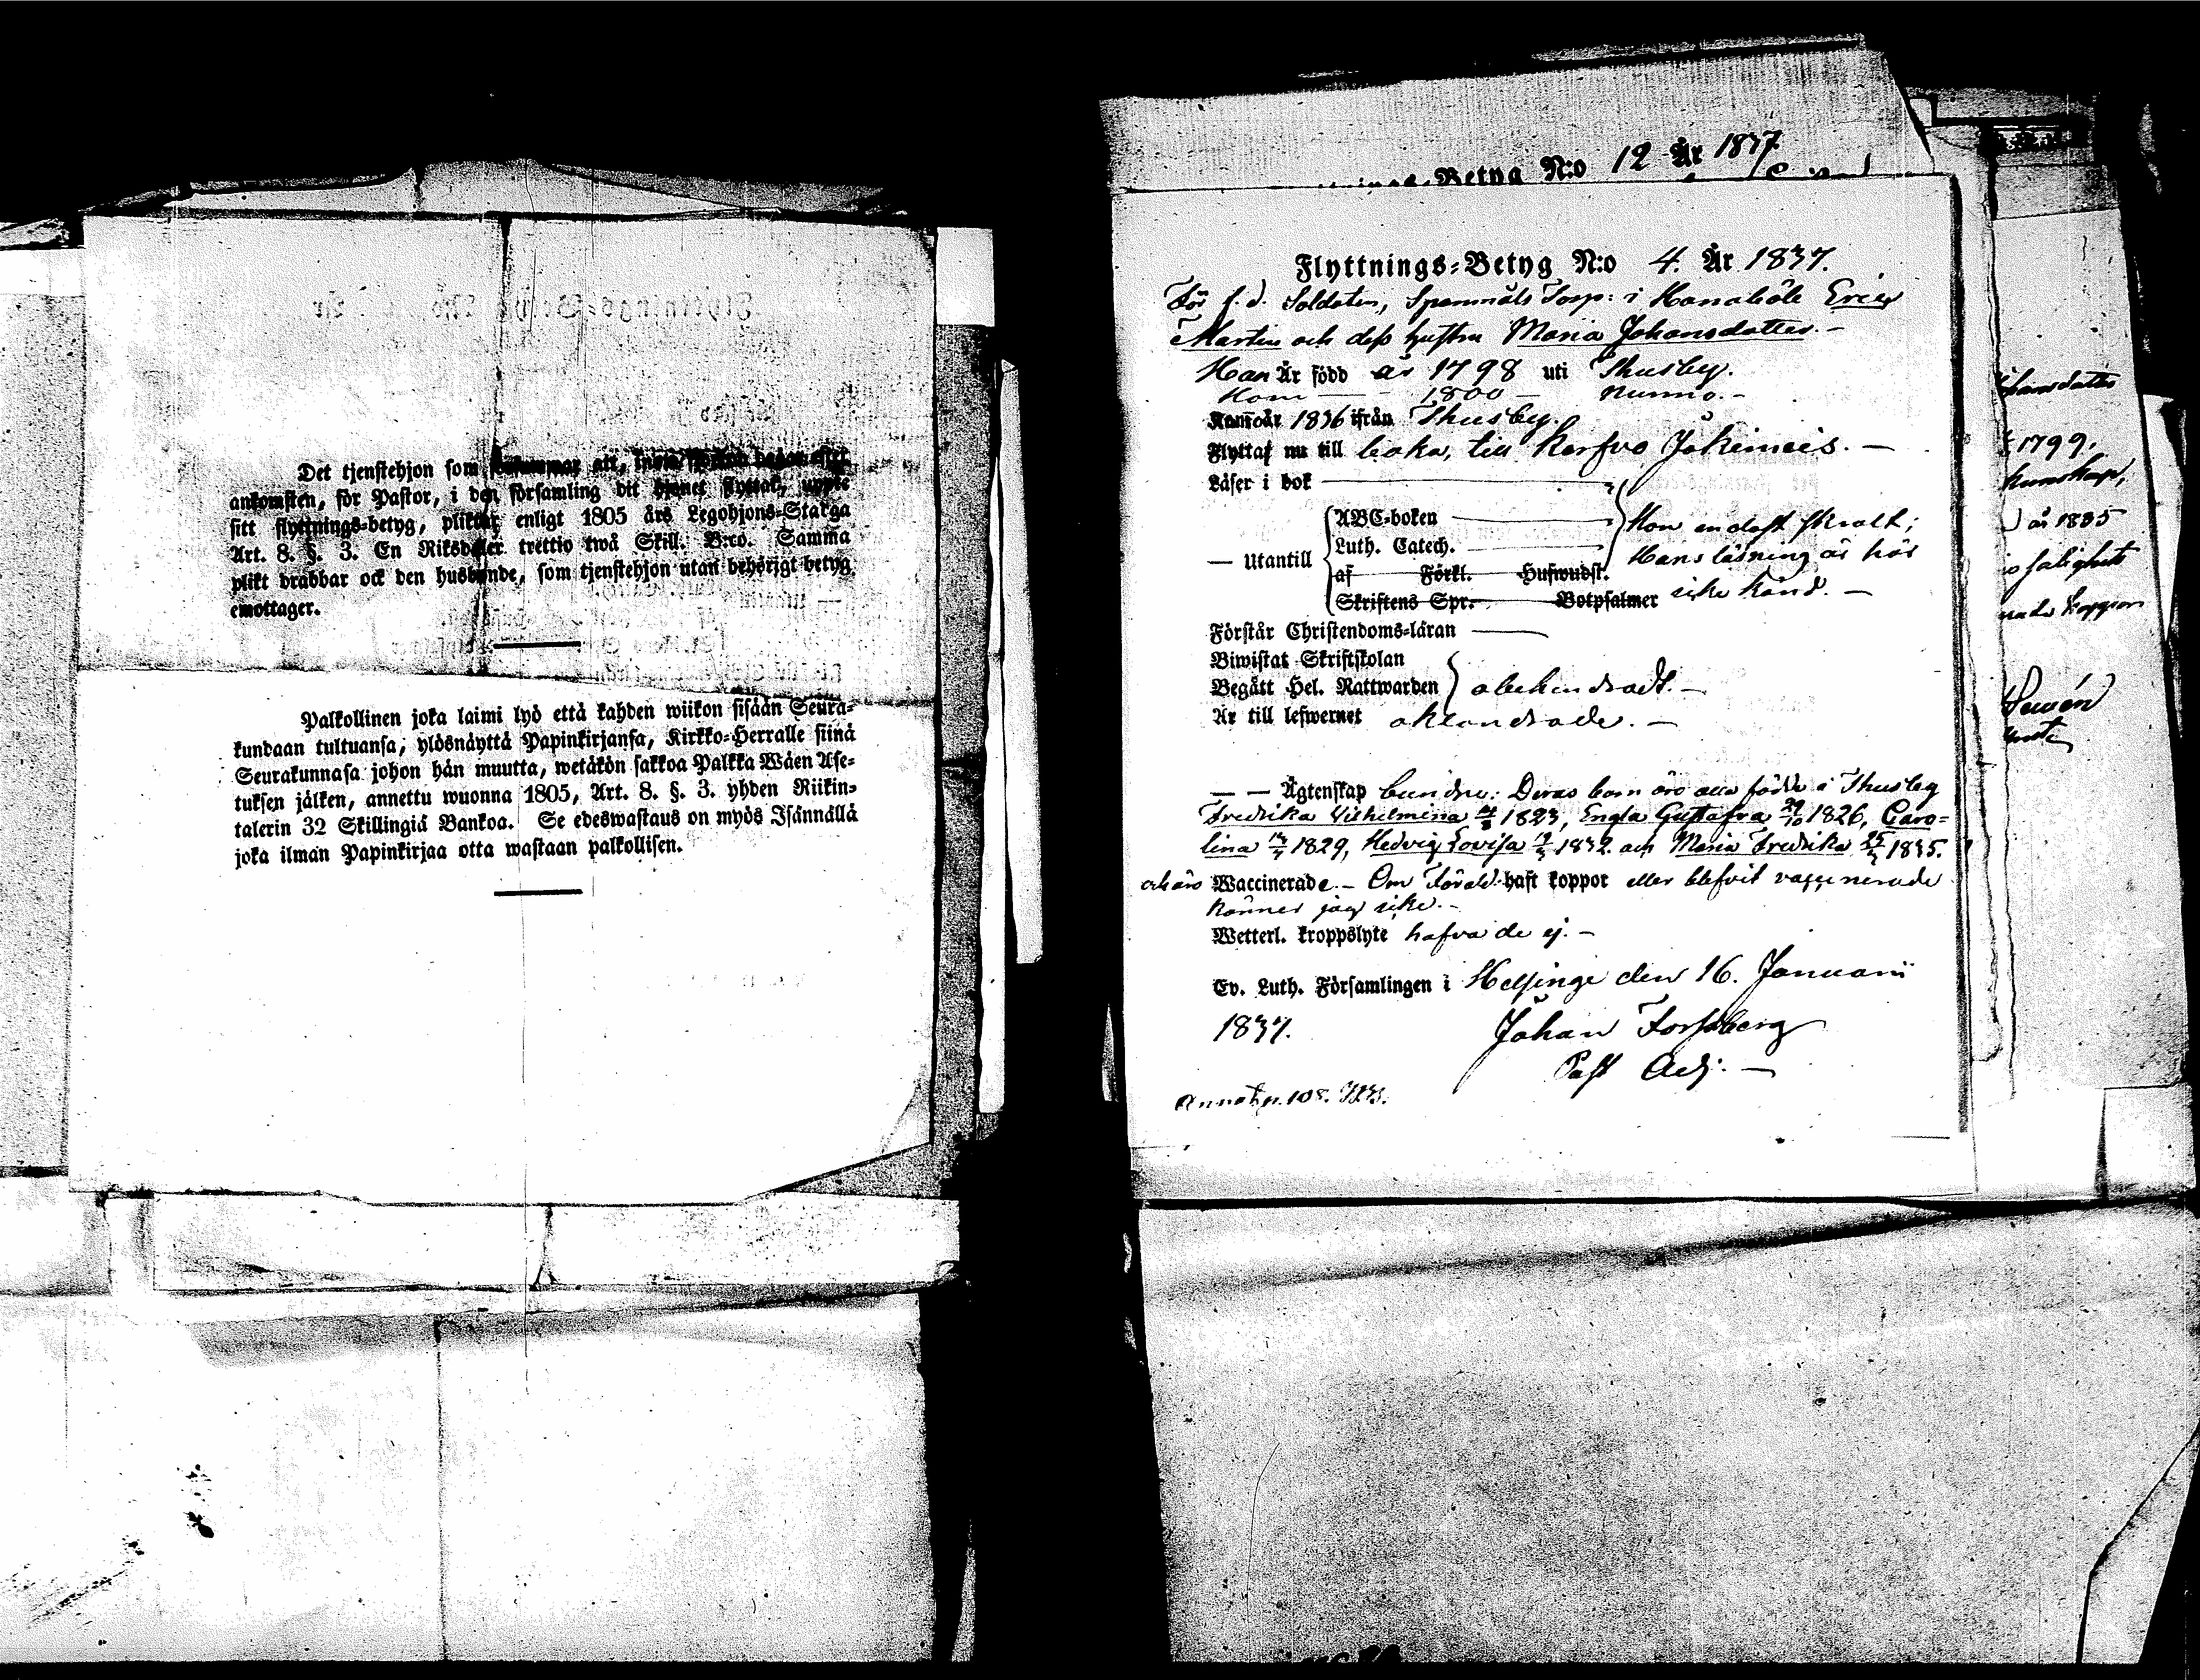 Det tjenstehjon som att,
ankomsten, för Pastor, i den församling dit flyttat, uppte
sitt flyttnings-betyg, pliktar enligt 1805 års Legohjons-Stadga
Art. 8. §. 3. En Riksdaler trettio twå Skill. B:co. Samma
plikt drabbar ock den husbonde, som tjenstehjon utan behörigt betyg
emottager.
Palkollinen joka laimi lyö että kahden wiikon sisään Seura-
kundaan tultuansa, ylösnäyttä Papinkirjansa, Kirkko-Herralle siinä
Seurakunnasa johon hän muutta, wetäkön sakkoa Palkka Wäen Ase-
tuksen jälken, annettu wuonna 1805, Art. 8. §. 3. yhden Riikin-
talerin 32 Skillingiä Bankoa. Se edeswastaus on myös Isännällä
joka ilman Papinkirjaa otta wastaan palkollisen.
Betyg N:o 12 År 1837
Flyttnings-Betyg N:o 4. År 1837.
För f. d. Soldaten, Spanmåls Torp: i Hanaböle Eric
Martin och dess hustru Maria Johansdotter. -
Han Är född år 1798 uti Thusby.
Hon — 1800 — Nummo. -
Kom år 1836 ifrån Thusby.
Flyttar nu till baka, till Kerfvo Jokimeis. —
Läser i bok
— Utantill
ABC-boken
Luth. Catech.
af Förkl. Hufwudst.
Skriftens Spr. Botpsalmer
Hon endast svalt;
Hans läsning är här
icke känd. —
Förstår Christendoms-läran
Biwistat Skriftskolan
Begått Hel. Nattwarden } obehindradt. —
Är till lefwernet oklandrade. —
— — Ägtenskap bundne: Deras barn äro alla födde i Thusby
Fredrika Vilhelmina 1823, Engla Gustafva 29/10 1826, Caro-
lina 1829, Hedvig Lovisa 1832 och Maria Fredrika 25/3 1835.
och äro Waccinerade. - Om Föräld: haft koppor eller blefvit vaccinerade
känner jag icke. -
Wetterl. kroppslyte hafva de ej. -
Ev. Luth. Församlingen i Helsinge den 16. Januarii
1837. Johan Forssberg
Past Adj. —
Annot. p. 108.
1799.
kunskap,
år 1835
salighets
koppor